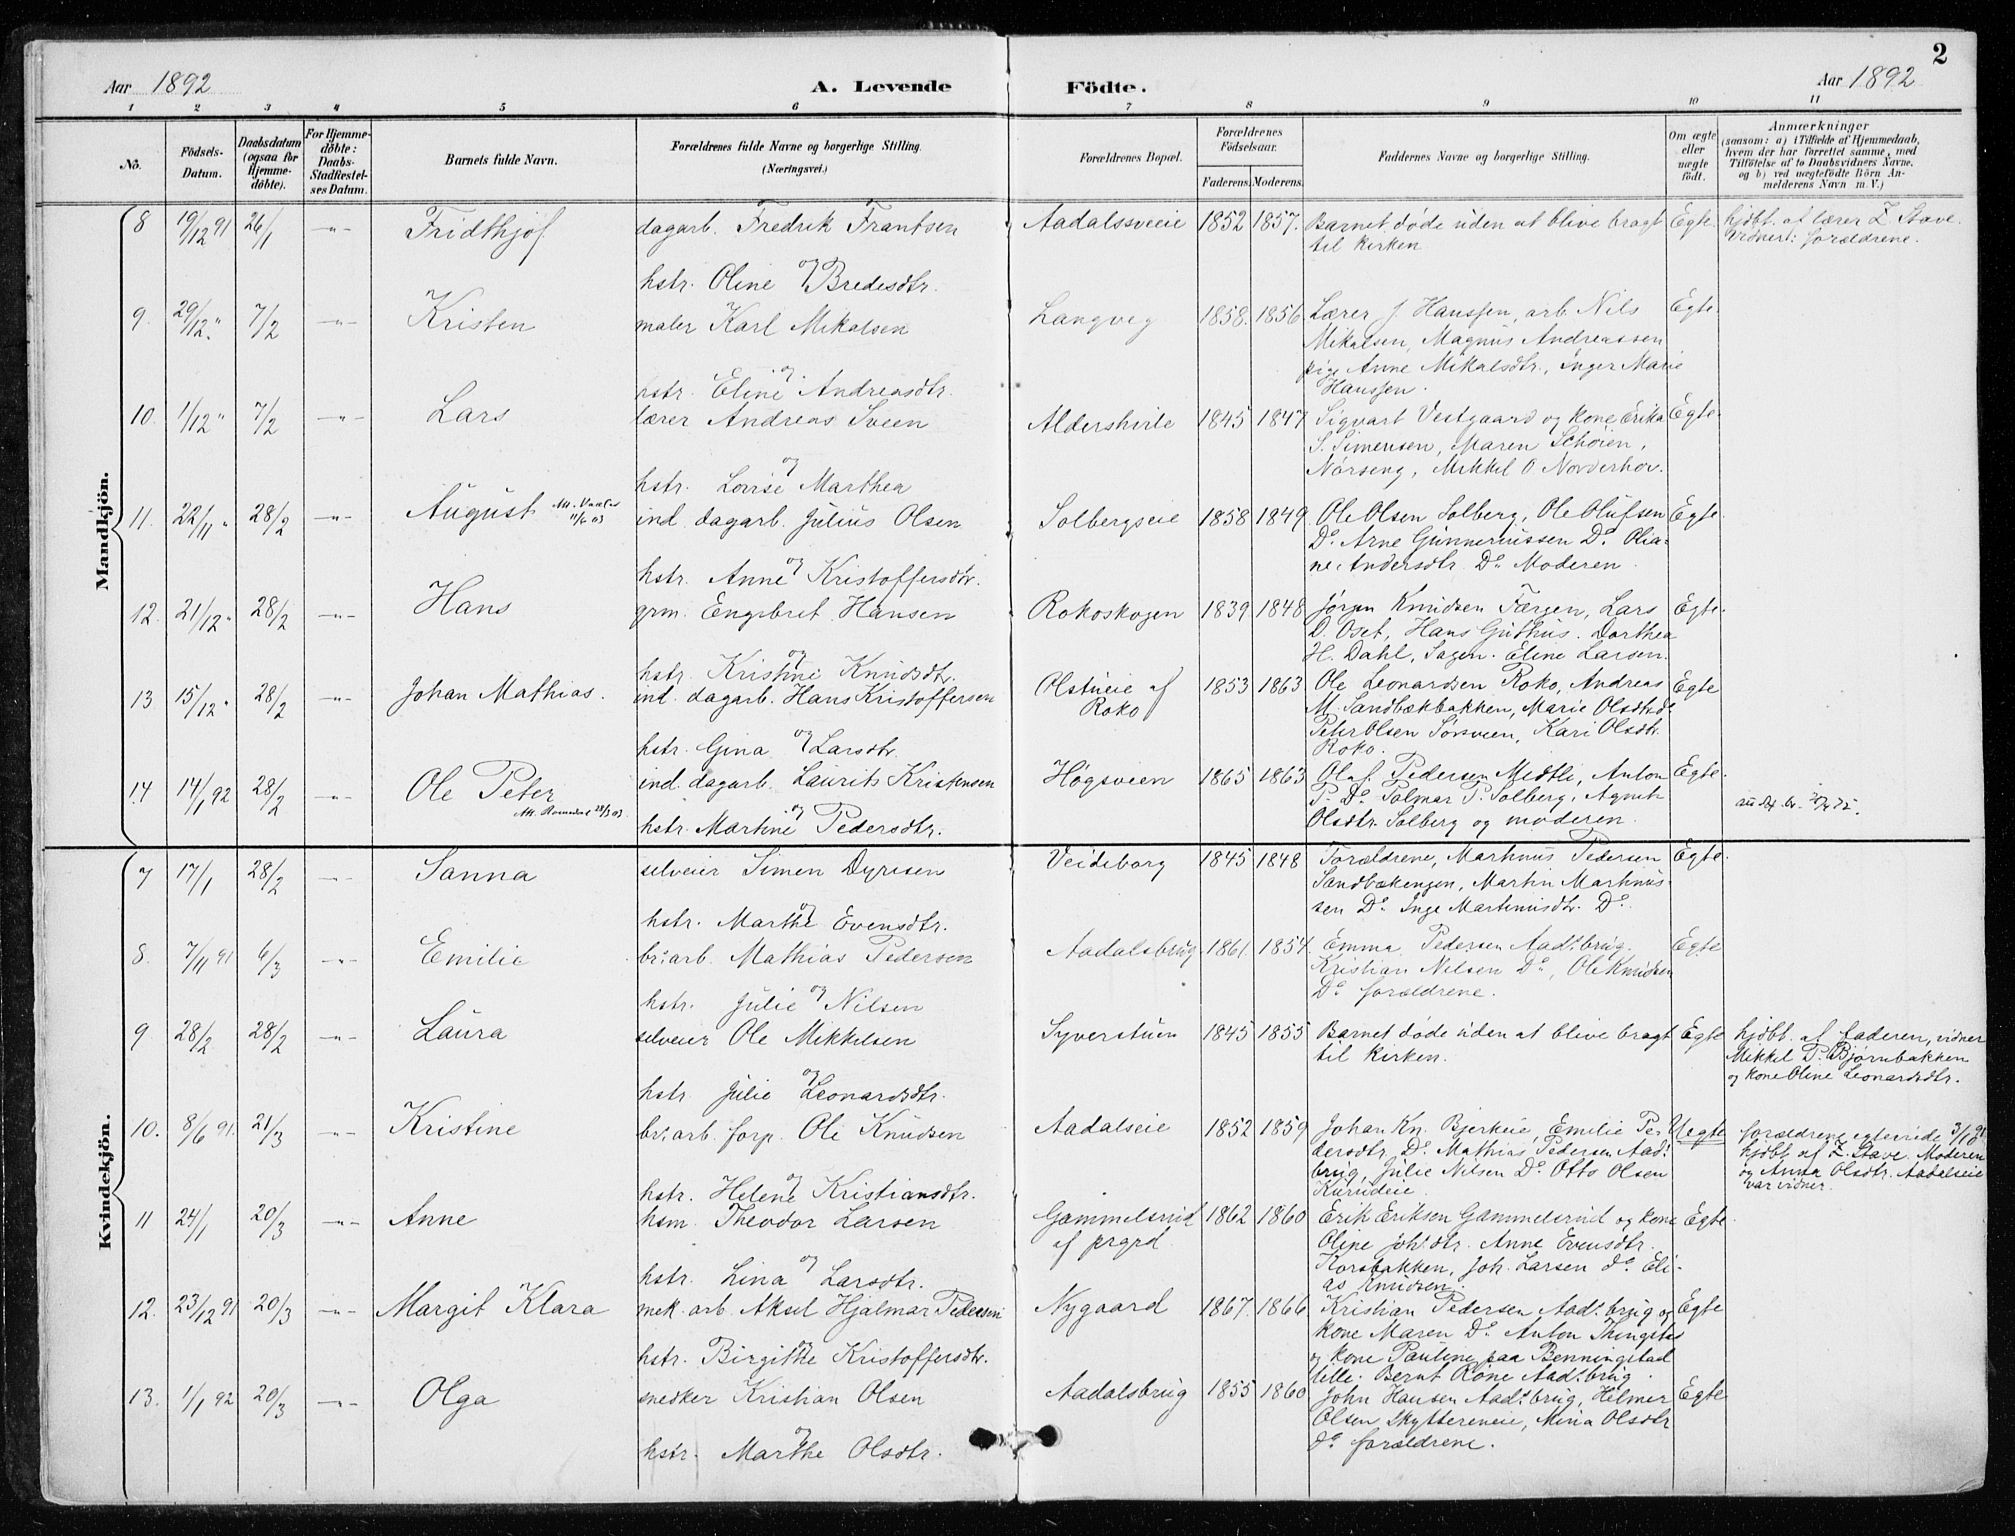 2
Aar 1892 A. Levende Födte. Aar 1892
1 2 3 4 5 6 7 8 9 10 11
No. Födsels-Datum. Daabsdatum (ogsaa for Hjemme-döbte). For Hjemme-döbte: Daabs-Stadfæstel-ses Datum. Barnets fulde Navn. Forældrenes fulde Navne og borgerlige Stilling. (Næringsvei.) Forældrenes Bopæl. Forældrenes Födselsaar. Faderens. Moderens. Faddernes Navne og borgerlige Stilling. Om ægte eller uægte födt. Anmærkninger (saasom: a) i Tilfælde af Hjemmedaab, hvem der har forrettet samme, med Tilföielse af to Daabsvidners Navne, og b) ved uægtefödte Börn An-melderens Navn m. V.)
Mandkjön.
8 19/12 91 26/1 -"- Fridthjof dagarb. Fredrik Frantsen Aadalssveie 1852 1857. Barnet døde uden at blive bragt Egte. hjdbt. af lærer Z Stave.
til kirken vidner: forældrene.
hstr. Oline og Bredesdtr.
9. 29/12 " 7/2 -"- Kristen maler Karl Mikalsen Langveg 1858. 1856 Lærer J. Hanssen, arb. Nils Egte.
Mikalsen, Magnus Andreassen
pige Anne Mikalsdtr., Inger Marie
Hanssen.
hstr. Eline og Andreasdtr.
10. 1/12 " 7/2 -"- Lars lærer Andreas Sveen Aldershvile 1845 1847 Sigvart Vestgaard og kone Erika Egte.
S. Simensen, Maren Schøien,
Nørseng, Mikkel O Norderhov.
hstr. Lovise og Marthea
11. 22/11 " 28/2 -"- August ind. dagarb. Julius Olsen Solbergseie 1858 1849 Ole Olsen Solberg, Ole Olufsen Egte
11/6 03
Do. Arne Gunneriussen Do. Olia-
ne Andersdtr. Do. Moderen.
hstr. Anne og Kristoffersdtr.
12. 21/12 " 28/2 -"- Hans grm. Engebret Hansen Rokoskogen 1839 1848 Jørgen Knudsen Færgen, Lars Egte.
O. Oset, Hans Guthus. Dorthea
H. Dahl, Sagen. Eline Larsen.
hstr. Kristine og Knudsdtr.
13 15/12 " 28/2 -"- Johan Mathias. ind. dagarb. Hans Kristoffersen Olstueie af Roko 1853 1863 Ole Leonardsen Roko, Andreas Egte
M. Sandbækbakken, Marie Olsdtr. do
Peter Olsen Sørsveen, Kari Olsdtr.
Roko.
hstr. Gina og Larsdtr.
14 14/1 92 28/2 -"- Ole Peter ind. dagarb. Laurits Kristensen Høgsveen 1865 1863 Olaf Pedersen Midtli, Anton Egte.
Att. Romedal 28/3 03.
P. Do. Palmar P. Solberg, Agnete
Olsdtr. Solberg og moderen.
hstr. Martine og Pedersdtr.
Kvindekjön.
7 17/1 28/2 -"- Sanna selveier Simen Dyresen Veidsborg 1845 1848 Forældrene, Marthnus Pedersen Egte.
Sandbækengen, Martin Marthnus-
sen Do. Inge Martinusdtr. Do.
hstr. Marthe og Evensdtr.
8. 7/11 91 6/3 -"- Emilie br. arb. Mathias Pedersen Aadalsbrug 1861. 1854 Emma Pedersen Aad. brug. Egte
Kristian Nilsen Do., Ole Knudsen
Do. forældrene.
hstr. Julie og Nilsen
9 28/2 28/2 -"- Laura selveier Ole Mikkelsen Syverstuen 1845 1855 Barnet døde uden at blive bragt Egte hjdbt. af faderen, vidner
til kirken. Mikkel P. Bjørnbakken
og kone Oline Leonardsdtr.
hstr. Julie og Leonardsdtr.
10. 8/6 91. 21/3 -"- Kristine br. arb. forp. Ole Knudsen Aadalseie 1852 1859 Johan Kn. Bjerkeie, Emilie Pe- Uegte forældrene egteviede 3/1 92
dersdtr. Do. Mathias Pedersen Aad. hjdbt af Z. Stave. Moderen
brug, Julie Nilsen Do. Otto Olsen og Anna Olsdtr. Aadalseie
Kurudeie. var vidner.
hstr. Helene og Kristiansdtr.
11 24/1 20/3 -"- Anne hsm. Theodor Larsen Gammelsrud af prgrd. 1862 1860 Erik Eriksen Gammelsrud og kone Egte
Oline Joh. dtr. Anne Evensdtr.
Korsbakken, Joh. Larsen do. Eli-
as Knudsen.
hstr. Lina og Larsdtr.
12. 23/12 91 20/3 -"- Margit Klara mek. arb. Aksel Hjalmar Pedersen Nygaard 1867. 1866 Kristian Pedersen Aad. brug og Egte
kone Maren Do. Anton Thingstad
og kone Pauline paa Benningstad
lille. Bernt Röne Aad. brug.
hstr. Birgithe og Kristoffersdtr.
13. 1/1 92 20/3 -"- Olga snedker Kristian Olsen Aadalsbrug 1855 1860 John Hansen Aad. brug, Helmer Egte
Olsen Skyttereneie, Mina Olsdtr
Do. forældrene.
hstr. Marthe og Olsdtr.